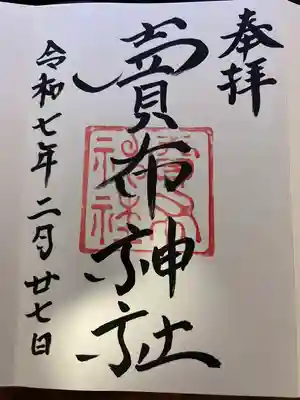 奉拝
賣布神社
令和七年二月廿七日